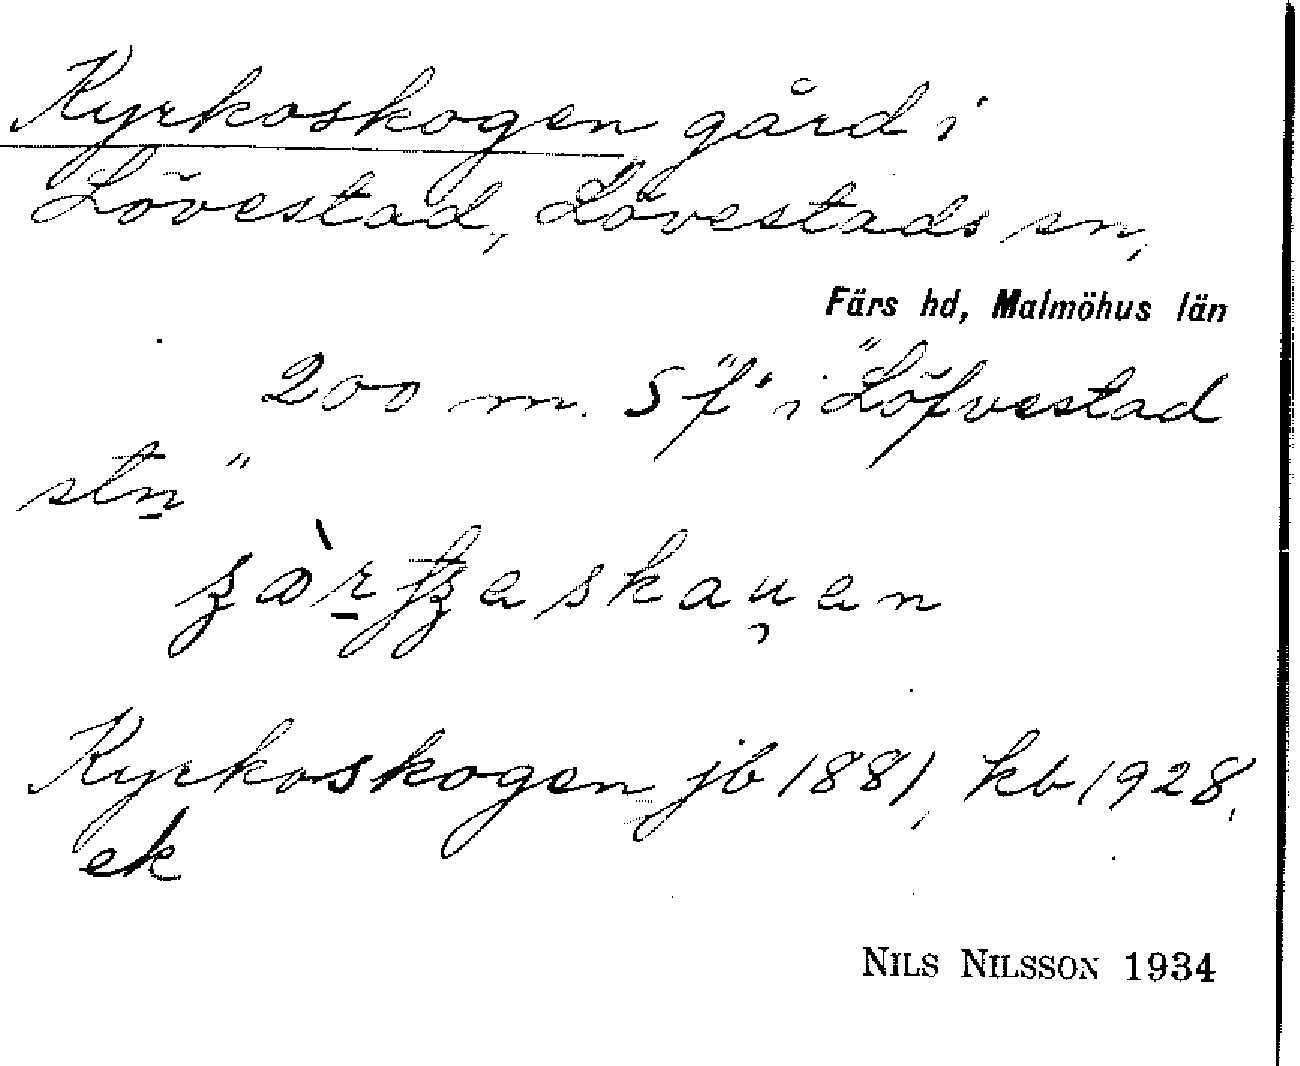 Kyrkoskogen gård i
Lövestad, Lövestads sn,
Färs hd, Malmöhus län
200 m. S "f" i "Löfvestad
stn"
Kyrkoskogen jb 1881, kb 1928,
ek
NILS NILSSON 1934